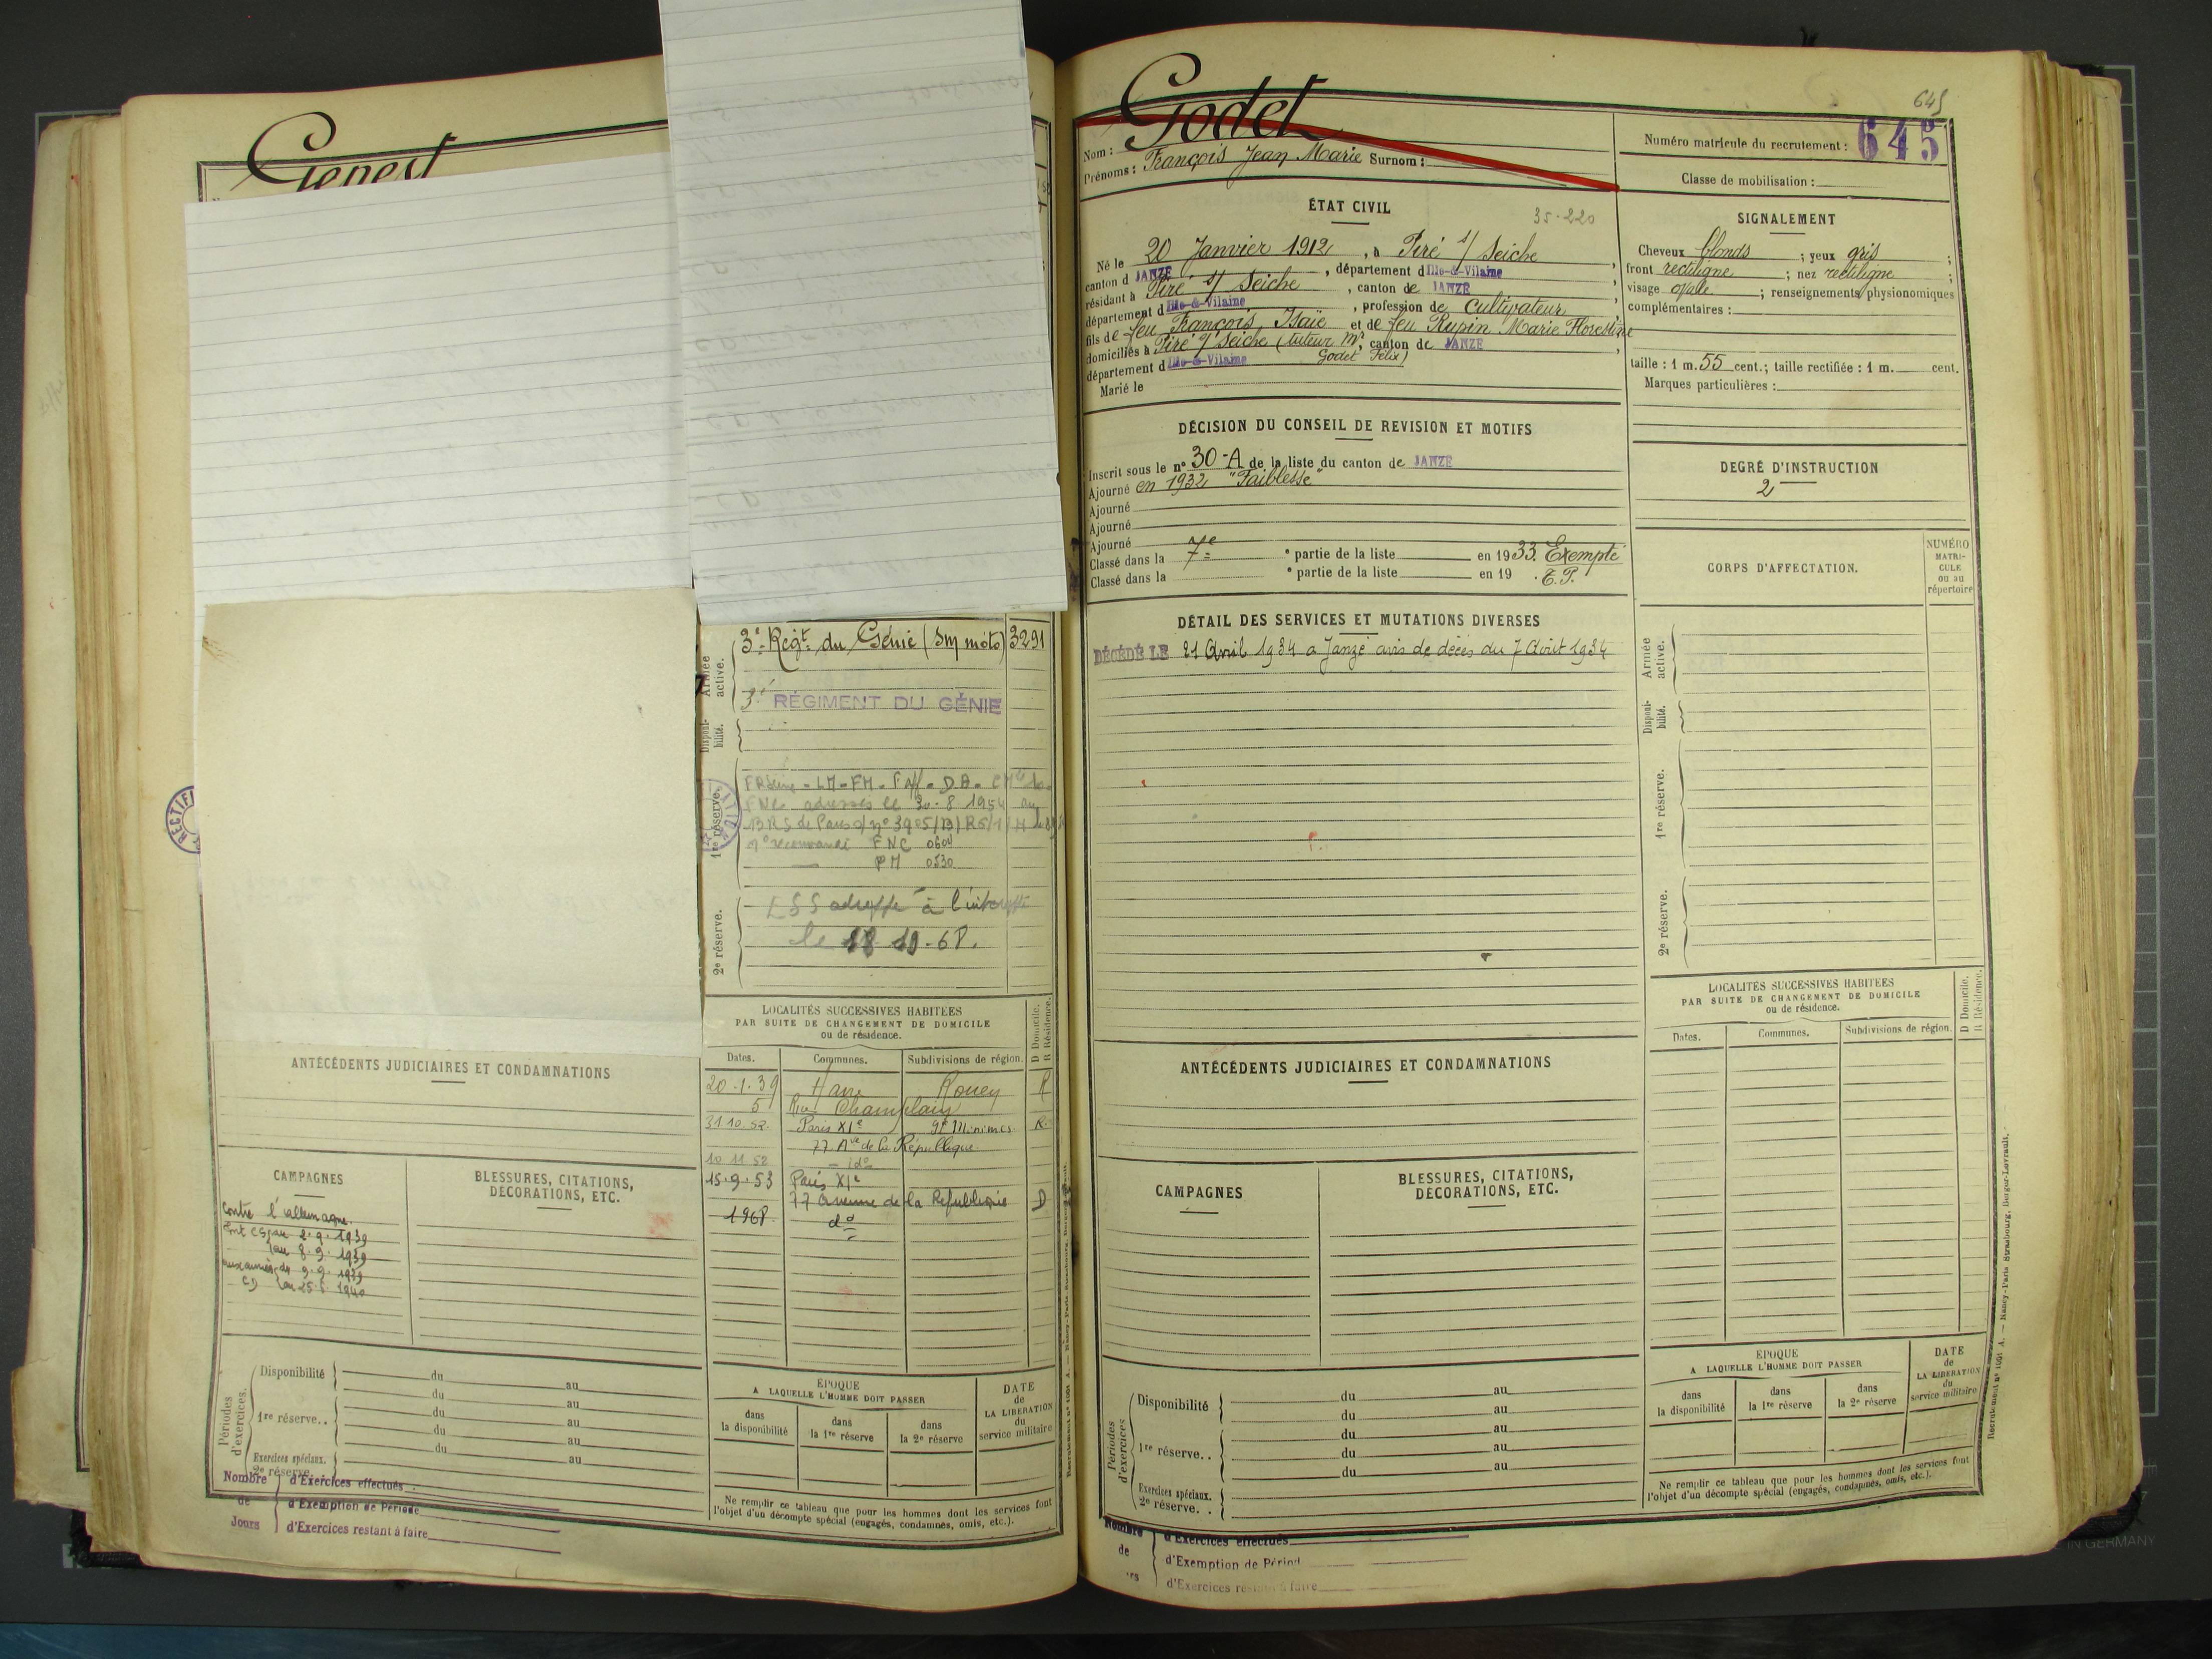 Genest
3e Regt du Génie (Sm moto) 3291
Armée active.
3e RÉGIMENT DU GÉNIE
Disponibilité.
1re réserve.
adresses le 30.8.1954 au
FNC 0604
PM 0530
2e réserve.
à l'intéressé
le 18 10.68.
RECTIFI
LOCALITÉS SUCCESSIVES HABITÉES
PAR SUITE DE CHANGEMENT DE DOMICILE
ou de résidence.
D Domicile.
R Résidence.
Dates. Communes. Subdivisions de région.
20.1.39 Havre Rouen R
5 Rue Champlain
31.10.52. Paris XIe Minimes R.
77 Ave de la République
10.11.52 - ido
15.9.53 Paris XIe
77 avenue de la République D
1968 do
ANTÉCÉDENTS JUDICIAIRES ET CONDAMNATIONS
CAMPAGNES
Contre l'allemagne.
2.9.1939
au 8.9.1939
aux armées du 9.9.1939
CD au 25.6.1940
BLESSURES, CITATIONS,
DÉCORATIONS, ETC.
Périodes d'exercices.
Disponibilité du au
du au
1re réserve.. du au
du au
du au
Exercices spéciaux.
2e réserve.
Nombre de Jours
d'Exercices effectués
d'Exemption de Période
d'Exercices restant à faire
ÉPOQUE
A LAQUELLE L'HOMME DOIT PASSER
dans la disponibilité
dans la 1re réserve
dans la 2e réserve
DATE de LA LIBÉRATION du service militaire
Ne remplir ce tableau que pour les hommes dont les services font
l'objet d'un décompte spécial (engagés, condamnés, omis, etc.).
645
Nom : Godet
Prénoms : François Jean Marie Surnom :
Numéro matricule du recrutement : 645
Classe de mobilisation :
ÉTAT CIVIL
35.220
Né le 20 Janvier 1912, à Piré s/ Seiche
canton d JANZE, département d Ille-&-Vilaine
résidant à Piré s/ Seiche, canton de JANZE
département d Ille-&-Vilaine, profession de Cultivateur
fils de feu François Isaïe et de feu Rupin Marie Florestine
domiciliés à Piré s/ Seiche (tuteur Mr, canton de JANZE
département d Ille-&-Vilaine Godet Félix)
Marié le
SIGNALEMENT
Cheveux blonds ; yeux gris ;
front rectiligne ; nez rectiligne ;
visage ovale ; renseignements physionomiques
complémentaires :
taille : 1 m. 55 cent. ; taille rectifiée : 1 m. cent.
Marques particulières :
DÉCISION DU CONSEIL DE REVISION ET MOTIFS
Inscrit sous le n° 30-A de la liste du canton de JANZE
Ajourné en 1932 "Faiblesse"
Ajourné
Ajourné
Ajourné
Classé dans la 7e e partie de la liste en 1933. Exempté
Classé dans la e partie de la liste en 19 . E.P.
DEGRÉ D'INSTRUCTION
2
CORPS D'AFFECTATION.
NUMÉRO MATRICULE ou au répertoire
DÉTAIL DES SERVICES ET MUTATIONS DIVERSES
DÉCÉDÉ LE 21 Avril 1934 a Janzé avis de décès du 7 Août 1934
Armée active.
Disponibilité.
1re réserve.
2e réserve.
LOCALITÉS SUCCESSIVES HABITÉES
PAR SUITE DE CHANGEMENT DE DOMICILE
ou de résidence.
D Domicile.
R Résidence.
Dates. Communes. Subdivisions de région.
ANTÉCÉDENTS JUDICIAIRES ET CONDAMNATIONS
CAMPAGNES
BLESSURES, CITATIONS,
DÉCORATIONS, ETC.
Périodes d'exercices
Disponibilité du au
du au
1re réserve.. du au
du au
du au
Exercices spéciaux.
2e réserve..
Nombre de
d'Exercices effectués
d'Exemption de Périod
d'Exercices restant à faire
ÉPOQUE
A LAQUELLE L'HOMME DOIT PASSER
dans la disponibilité
dans la 1re réserve
dans la 2e réserve
DATE de LA LIBÉRATION du service militaire
Ne remplir ce tableau que pour les hommes dont les services font
l'objet d'un décompte spécial (engagés, condamnés, omis, etc.).
Recrutement n° 1001 A. — Nancy-Paris-Strasbourg, Berger-Levrault.
IN GERMANY